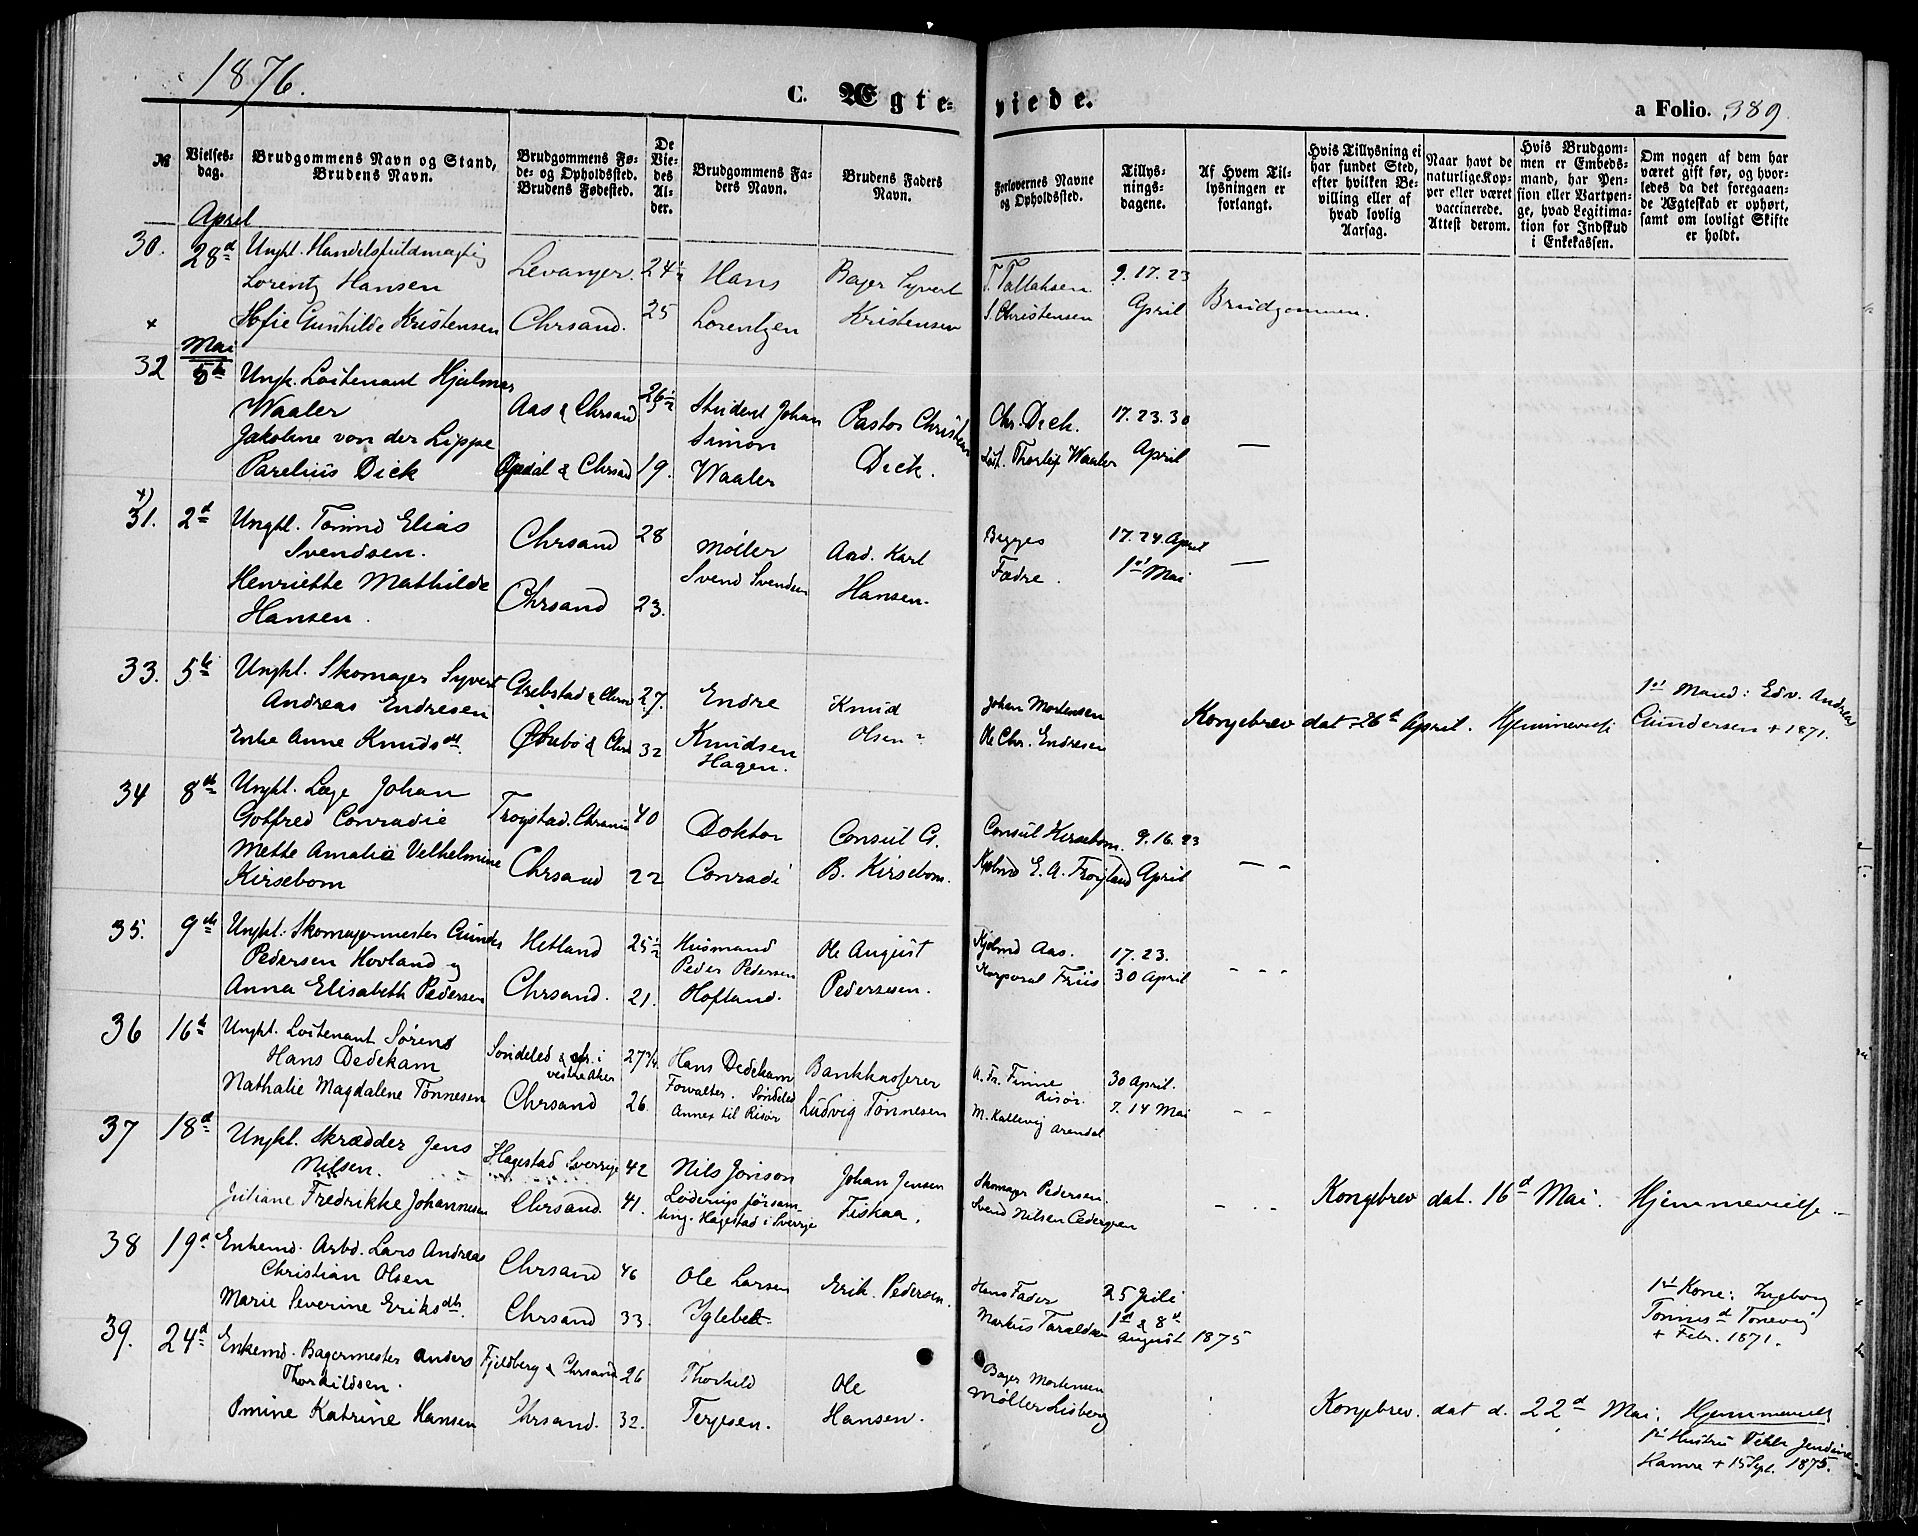 1876.
C. Ægte-
viede.
a Folio. 389
№
Vielses-
dag.
Brudgommens Navn og Stand,
Brudens Navn.
Brudgommens Fø-
de- og Opholdssted.
Brudens Fødested.
De
Vie-
des
Al-
der.
Brudgommens Fa-
ders Navn.
Brudens Faders
Navn.
Forlovernes Navne
og Opholdssted.
Tillys-
nings-
dagene.
Af Hvem Til-
lysningen er
forlangt.
Hvis Tillysning ei
har fundet Sted,
efter hvilken Be-
villing eller af
hvad lovlig
Aarsag.
Naar havt de
naturlige Kop-
per eller været
vaccinerede.
Attest derom.
Hvis Brudgom-
men er Embeds-
mand, har Pen-
sion eller Vartpen-
ge, hvad Legitima-
tion for Indskud
i Enkekassen.
Om nogen af dem har
været gift før, og hvor-
ledes da det foregaaen-
de Ægteskab er ophørt,
samt om lovligt Skifte
er holdt.
April
30. 28d Ungkl. Handelsfuldmægtig
Lorentz Hansen
Sofie Gunhilde Kristensen
Levanger. 24½
Chrsand. 25
Hans
Lorentzen
Bager Syvert
Kristensen
T. Tallaksen
S. Christensen
9. 17. 23
April
Brudgommen.
Mai
32 5te Ungk. Løitenant Hjalmar
Waaler
Jakobine von der Lippe
Parelius Dick
Aas & Chrsand 26½
Opdal & Chrsand 19.
Student Johan
Simon
Waaler
Pastor Christian
Dick.
Chr. Dick.
Løit. Thorleif Waaler
17. 23. 30
April
—
+)
31. 2d Ungkl. Tønnes Elias
Svendsen.
Henriette Mathilde
Hansen.
Chrsand 28
Chrsand 23.
Møller
Svend Svendsen
Arb. Karl
Hansen.
Begges
Fædre.
17. 24. April
1st Mai
—
33. 5te Ungkl. Skomager Syvert
Andreas Endresen
Enke Anne Knudsdt
Grebstad & Chrsand 27.
Øvrebø & Chrsd 32
Endre
Knudsen
Hagen.
Knud
Olsen
Johan Mortensen
Ole Chr. Endresen
Kongebrev dat 26d April. Hjemmevielse
1st Mand: Edv. Andreas
Gundersen + 1871.
34 8d Ungkl. Læge Johan
Gotfred Conradie
Mette Amalie Velhelmine
Kirsebom
Trøgstad. Chrania 40
Chrsand 22
Doktor
Conradi
Consul G.
B. Kirsebom.
Consul Kirsebom.
Kjøbmd E. A. Frøyland
9. 16. 23
April
— —
35. 9de Ungkl. Skomagermester Gunder
Pedersen Hovland og
Anna Elisabeth Pedersen
Hetland 25½
Chrsand. 21.
Husmand
Peder Pedersen
Hofland.
Ole August
Pedersen.
Kjøbmd Aas.
Korporal Friis
17. 23.
30 April
- - -
36 16d Ungkl. Løitenant Sørens
Hans Dedekam
Nathalie Magdalene Tønnesen
Søndeled & oph. i
vestre Aker 27¾
Chrsand 26.
Hans Dedekam
Forvalter. Søndeled
Annex til Risør
Bankkasserer
Ludvig Tønnesen
A. Fr. Finne
Risør.
M. Kallevig Arendal
30 April.
7. 14 Mai
- -
37 18d Ungkl. Skrædder Jens
Nilsen.
Juliane Fredrikke Johannesen
Hagestad Sverrige 42
Chrsand. 41.
Nils Jonson
Løderups førsam-
ling. Hagestad i Sverrige
Johan Jensen
Fiskaa.
Skomager Pedersen.
Svend Nilsen Cedergren
- - -
Kongebrev dat. 16d Mai. Hjemmevielse.
38 19d Enkemd. Arbd. Lars Andreas
Christian Olsen
Marie Severine Eriksdt.
Chrsand 46
Chrsand 33.
Ole Larsen
Iglebek
Erik Pedersen.
Hans Fader
Markus Taraldsen
25 Juli
1st & 8d
August 1875
1st Kone: Ingeborg
Tønnesd Tonevig
+ Febr. 1871.
39. 24d Enkemd. Bagermester Anders
Thorkildsen.
Omine Katrine Hansen
Fjeldberg & Chrsand 26
Chrsand. 32.
Thorkild
Terjesen.
Ole
Hansen.
Bager Mortensen
Møller Lisberg
Kongebrev. dat d. 22d Mai. Hjemmevielse
1st Hustru Jendine
Hamre + 15 Sept. 1875.